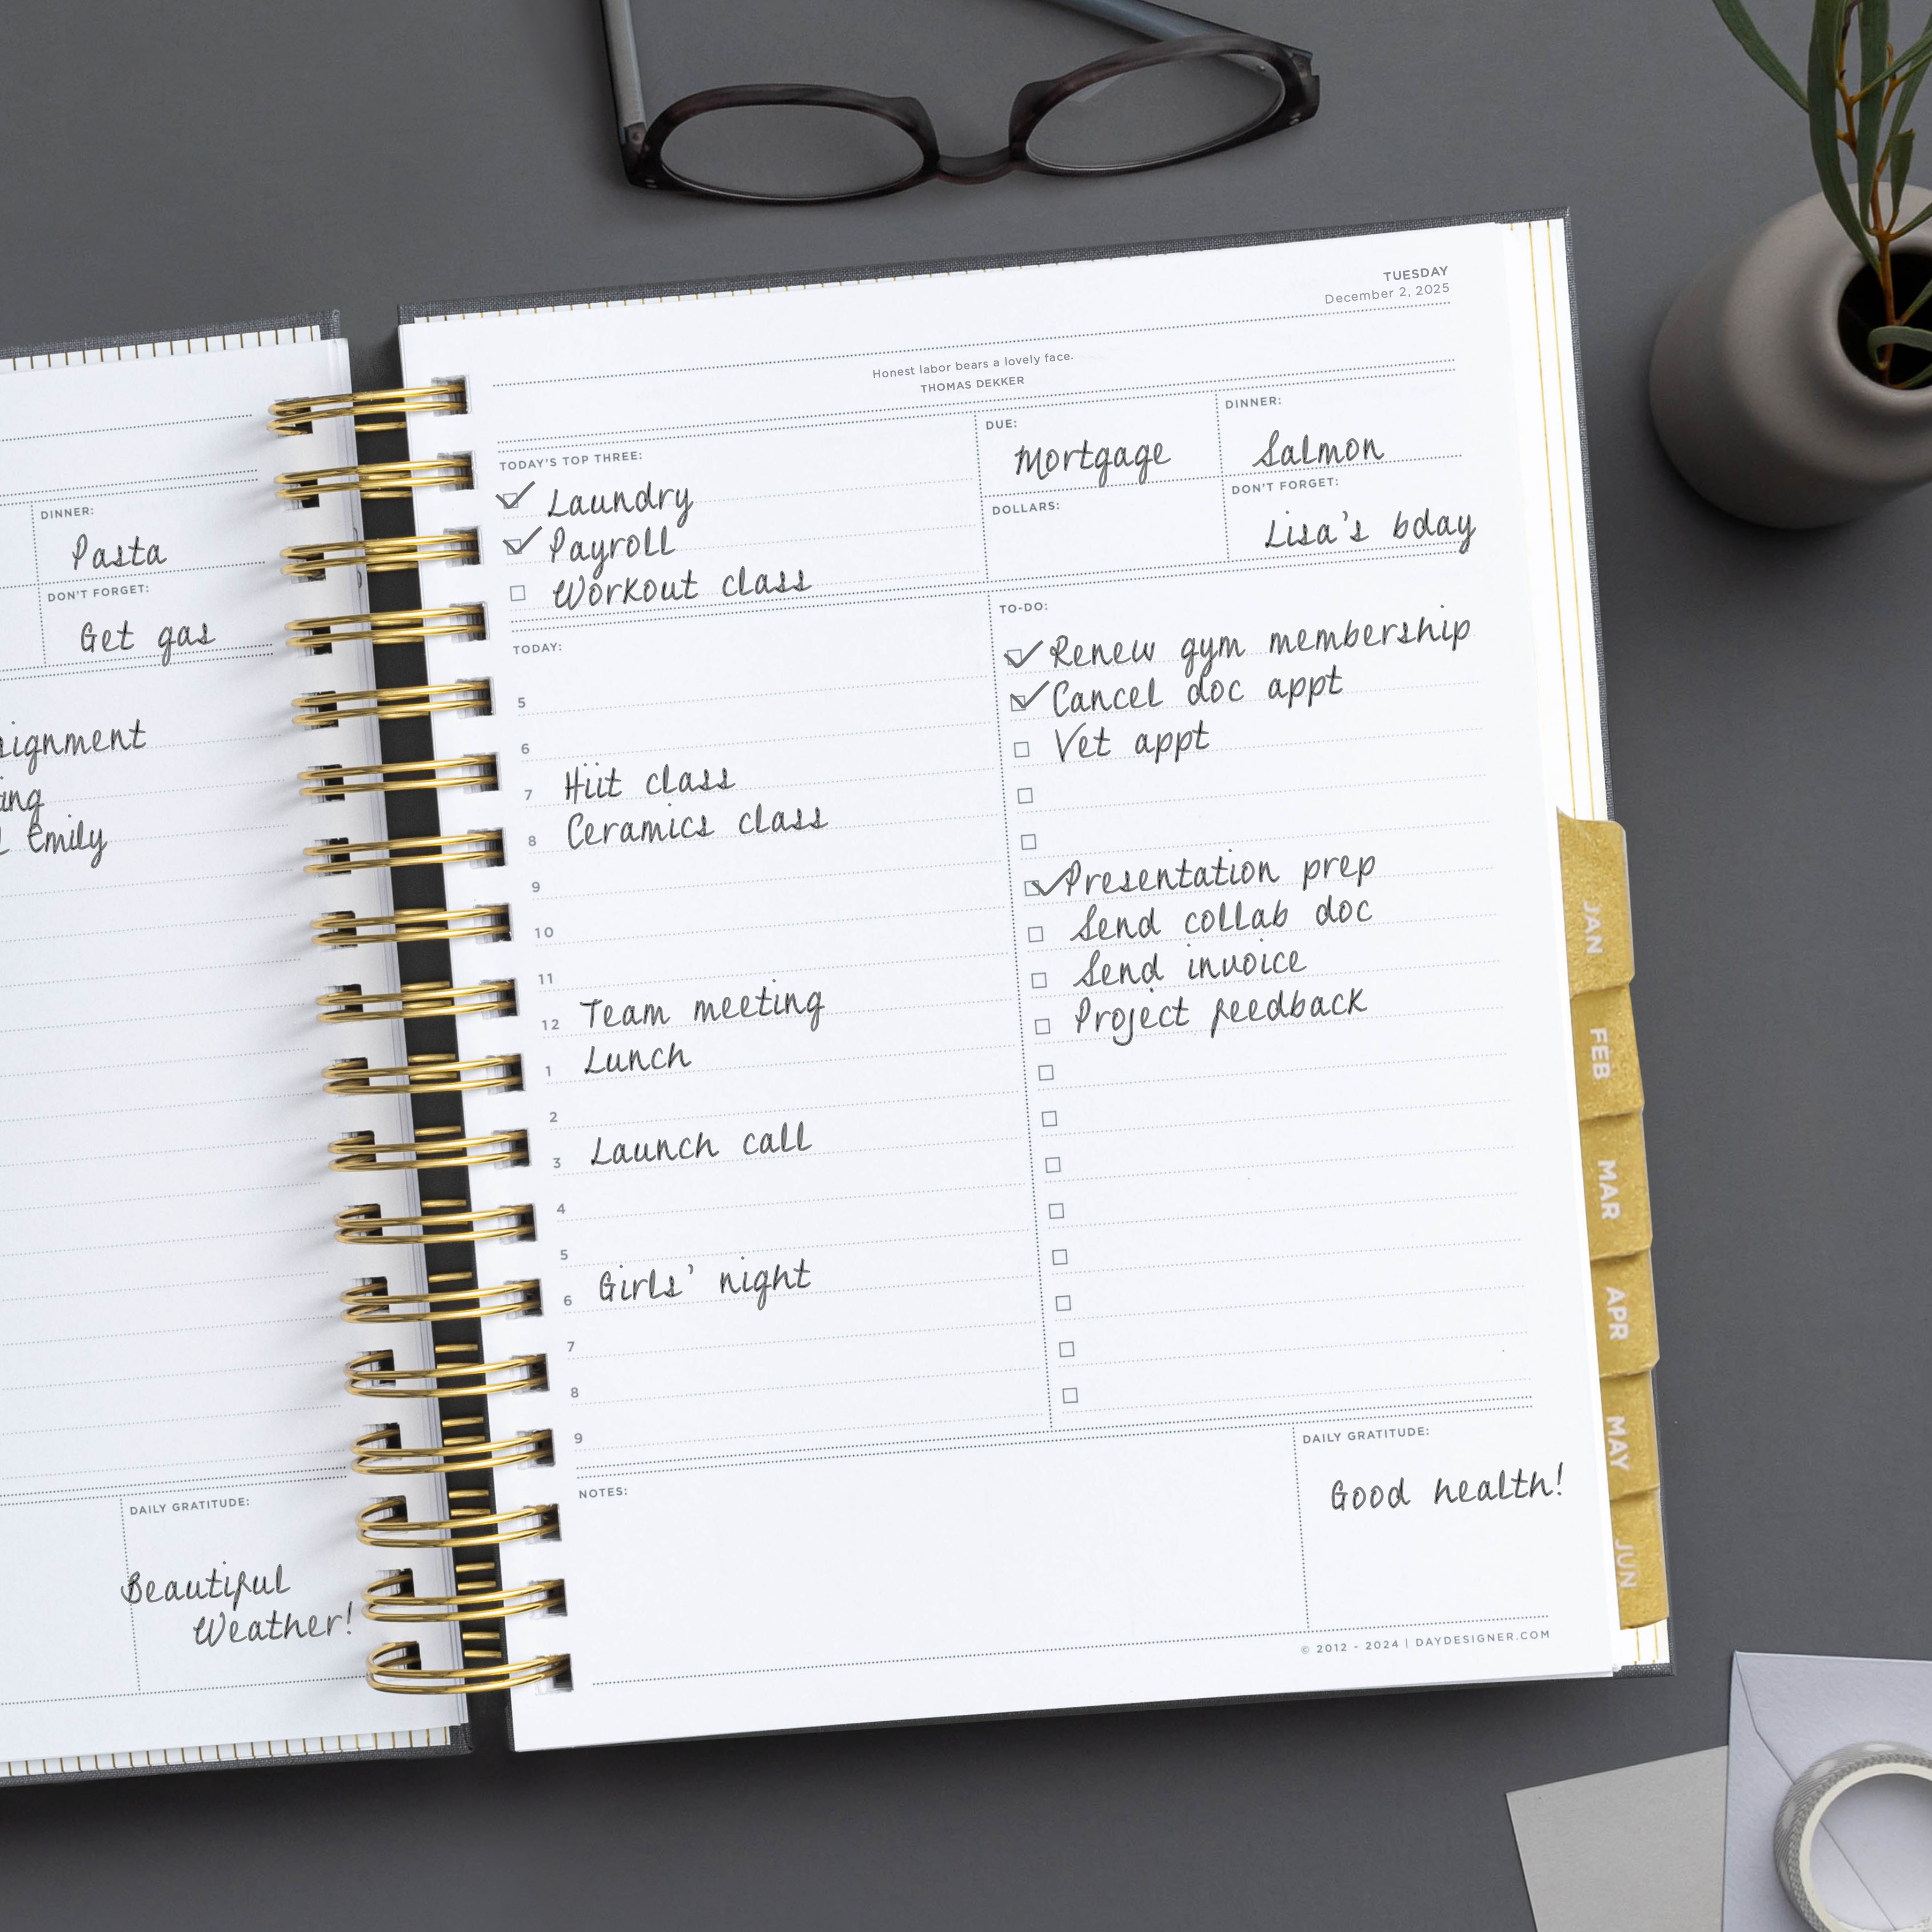 DINNER:
Pasta
DON'T FORGET:
Get gas
Emily
DAILY GRATITUDE:
Beautiful
Weather!
TUESDAY
December 2, 2025
Honest labor bears a lovely face.
THOMAS DEKKER
TODAY'S TOP THREE:
Laundry
Payroll
Workout class
DUE:
Mortgage
DINNER:
Salmon
DOLLARS:
DON'T FORGET:
Lisa's bday
TODAY:
5
6
7 Hiit class
8 Ceramics class
9
10
11
12 Team meeting
1 Lunch
2
3 Launch call
4
5
6 Girls' night
7
8
9
TO-DO:
Renew gym membership
Cancel doc appt
Vet appt
Presentation prep
Send collab doc
Send invoice
Project feedback
NOTES:
DAILY GRATITUDE:
Good health!
© 2012 - 2024 | DAYDESIGNER.COM
JAN
FEB
MAR
APR
MAY
JUN